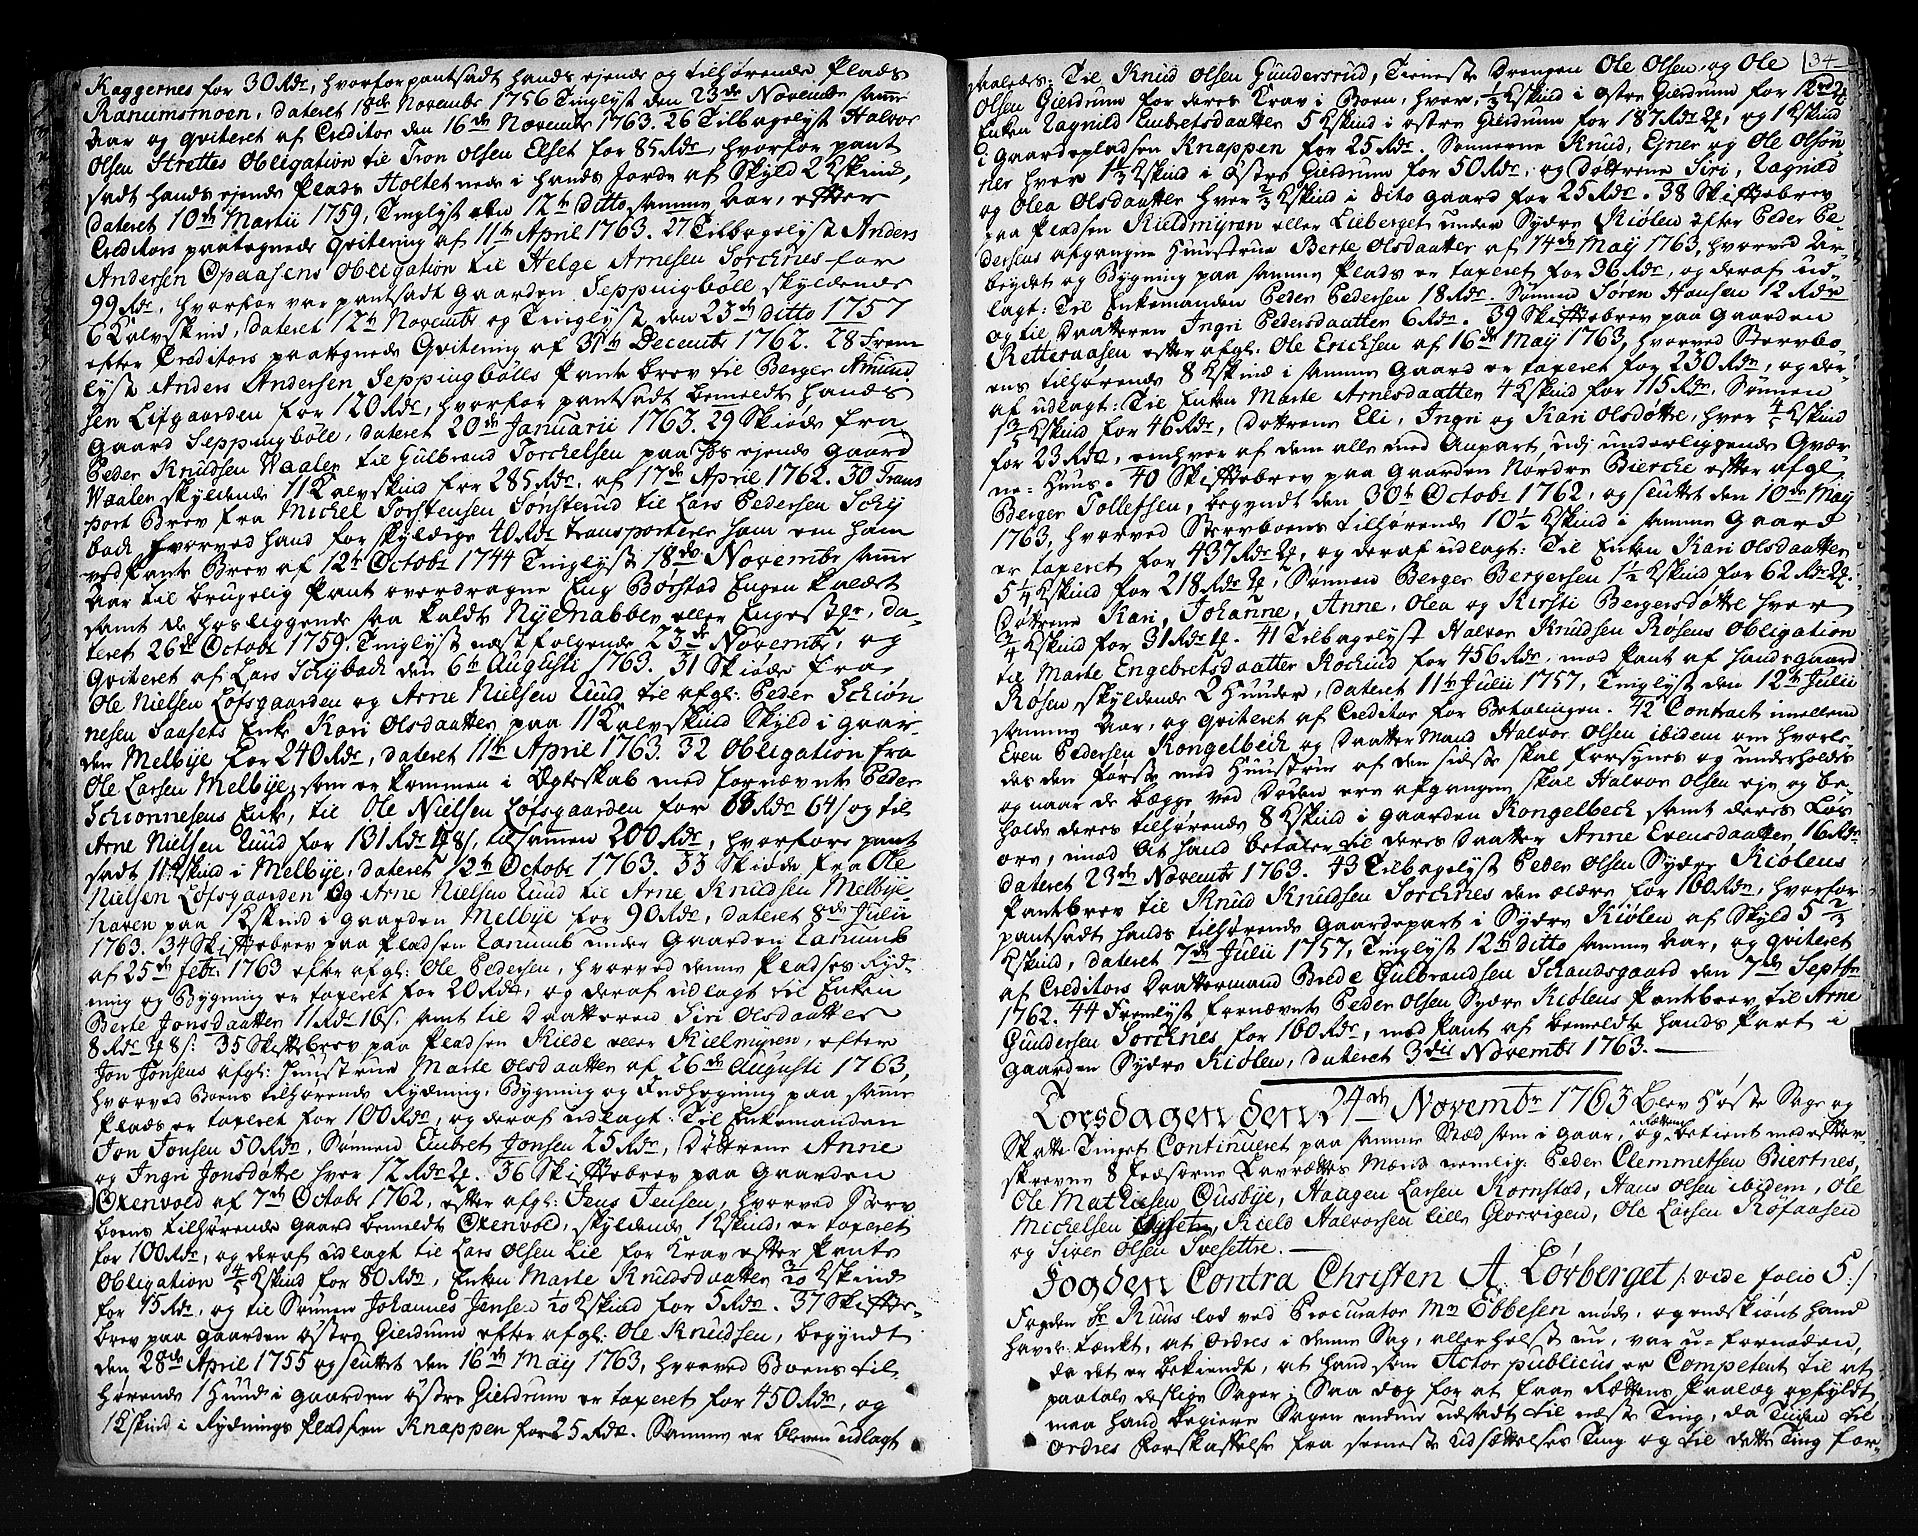 Kaggernes for 30 Rdr, hvorfor pantsadt hands ejende og tilhørende Plads
Ranumsmoen, dateret 18de Novembr 1756 Tinglyst den 23de Novembr samme
Aar og qviteret af Creditor den 16de Novembr 1763. 26 Tilbagelyst Halvor
Olsen Strettes Obligation til Tron Olsen Elset for 85 Rdr, hvorfor pant
sadt hands ejende Plads Holtet nede i hands Jorde af Skyld 2 Kskind,
dateret 10de Martii 1759, Tinglyst den 12te ditto samme Aar, efter
Creditors paategnede Qvitering af 11te April 1763. 27 Tilbagelyst Anders
Andersen Opaasens Obligation til Helge Arnesen Torchnes for
99 Rdr, hvorfor var pantsadt Gaarden Seppingbøll skyldende
6 Kalvskind, dateret 12te Novembr og Tinglyst den 23de ditto 1757
efter Creditors paategnede Qvitering af 31te Decembr 1762. 28 Frem
lyst Anders Andersen Seppingbølls Pante brev til Berger Amund
sen Lifgaarden for 120 Rdr, hvorfor pantsadt bemeldte hands
Gaard Seppingbøle, dateret 20de Januarii 1763. 29 Skiøde fra
Peder Knudsen Waaler til Gulbrand Torchelsen paa hs ejende Gaard
Waaler skyldende 11 Kalvskind for 285 Rdr, af 17de April 1762. 30 Trans
port Brev fra Michel Torstensen Sønsterud til Lars Pedersen Schy
bach hvorved hand for skyldige 40 Rdr transporterer ham en ham
ved Pante Brev af 12te Octobr 1744 Tinglyst 18de Novembr samme
Aar til brugelig Pant overdragne Eng Borstad Engen kaldet
samt de hosliggende saa kaldte Nyenabben eller Enges##, da-
teret 26de Octobr 1759. Tinglyst næstfølgende 23de Novembr, og
qviteret af Lars Schybach den 6te Augusti 1763. 31 Skiøde fra
Ole Nielsen Lofsgaarden og Arne Nielsen Lund til afgl: Peder Schiøn
nesen Saasets Enke Kari Olsdaatter paa 11 Kalvskind Skyld i Gaar-
den Melbye for 240 Rdr, dateret 11te April 1763. 32 Obligation fra
Ole Larsen Melbye, som er kommen i Ægteskab med fornævnte Peder
Schionnesens Enke, til Ole Nielsen Lofsgaarden for 68 Rdr 64 s og til
Arne Nielsen Lund for 131 Rdr 48 s, tilsammen 200 Rdr, hvorfore pant
sadt 11 Kskind i Melbye, dateret 12te Octobr 1763. 33 Skiøde fra Ole
Nielsen Lofsgaarden og Arne Nielsen Lund til Arne Knudsen Melbye
haven paa 1 Kskind i Gaarden Melbye for 90 Rdr, dateret 8de Julii
1763. 34 Skiftebrev paa Pladsen Ranumb under Gaarden Ranumb
af 25de Febr: 1763 efter afgl: Ole Pedersen, hvorved denne Pladses Ryd-
ning og Bygning er taxeret for 20 Rdr, og deraf udlagt til Enken
Berte Jonsdaatter 11 Rdr 16 s, samt til Daatteren Siri Olsdaatter
8 Rdr 3 q 8 s: 35 Skiftebrev paa Pladsen Kilde eller Kielmyren, efter
Jon Jonsens afgl: Hustrue Marte Olsdaatter af 26de Augusti 1763,
hvorved Boens tilhørende Rydning, Bygning og Indhegning paa samme
Plads er taxeret for 100 Rdr, og deraf udlagt: Til Enkemanden
Jon Jonsen 50 Rdr, Sønnen Embret Jonsen 25 Rdr, Døttrene Anne
og Ingri Jonsdøttre hver 12 Rdr 2 q. 36 Skiftebrev paa Gaarden
Oxenvold af 7de Octobr 1762, efter afgl: Jens Jensen, hvorved Sterv-
boens tilhørende Gaard bemeldte Oxenvold, skyldende 1 Kskind, er taxeret
for 100 Rdr, og deraf udlagt til Lars Olsen Lie for Krav efter Pante
Obligation 4/5 Kskind for 80 Rdr, Enken Marte Knudsdaatter 3/20 Kskind
for 15 Rdr, og til Sønnen Johannes Jensen 1/20 Kskind for 5 Rdr. 37 Skifte-
brev paa Gaarden østre Gierdrum efter afgl: Ole Knudsen, begyndt
den 28de April 1755 og sluttet den 16de May 1763, hvorved Boens til-
hørende 1 Huud i Gaarden østre Gierdrum er taxeret for 450 Rdr, og
1 Kskind i Rydnings Pladsen Knappen for 25 Rdr. Samme er bleven udlagt
34
saaledes: Til Knud Olsen Gundersrud, Tieneste Drengen Ole Olsen, og Ole
Olsen Gierdrum for deres Krav i Boen, hver 1/3 Kskind i østre Gierdrum for 12 Rdr 2 q
Enken Ragnild Embretsdaatter 5 Kskind i østre Gierdrum for 187 Rdr 2 q, og 1 Kskind
i Gaardepladsen Knappen for 25 Rdr. Sønnerne Knud, Ejner og Ole Olsøn-
ner hver 1 1/3 Kskind i Østre Gierdrum for 50 Rdr, og Døttrene Siri, Ragnild
og Olea Olsdaatter hver 2/3 Kskind i dito Gaard for 25 Rdr. 38 Skiftebrev
paa Pladsen Kieldmyren eller Lieberget under Sydre Kiølen efter Peder Pe-
dersens afgangne Huustrue Berte Olsdaatter af 14de May 1763, hvorved Ar-
beydet og Bygning paa samme Plads er taxeret for 36 Rdr, og deraf ud-
lagt: Til Enkemanden Peder Pedersen 18 Rdr. Sønnen Søren Hansen 12 Rdr
og til Daatteren Ingri Pedersdaatter 6 Rdr. 39 Skiftebrev paa Gaarden
Retteraasen efter afgl: Ole Ericksen af 16de May 1763, hvorved Stervbo-
ens tilhørende 8 Kskind i samme Gaard er taxeret for 230 Rdr, og der-
af udlagt: Til Enken Marte Arnesdaatter 4 Kskind for 115 Rdr, Sønnen
1 3/5 Kskind for 46 Rdr, Døttrene Eli, Ingri og Kari Olsdøttre, hver 4/5 Kskind
for 23 Rdr, enhver af dem alle med Anpart udj underliggende Qvær-
ne-Huus. 40 Skiftebrev paa Gaarden Nordre Bierche efter afgl
Berger Tollefsen, begyndt den 30te Octobr 1762, og sluttet den 10de May
1763, hvorved Stervboens tilhørende 10 1/2 Kskind i samme Gaard
er taxeret for 437 Rdr 2 q, og deraf udlagt: Til Enken Kari Olsdaatter
5 1/4 Kskind for 218 Rdr 3 q, Sønnen Berger Bergersen 1 1/2 Kskind for 62 Rdr 2 q.
Døttrene Kari, Johanne, Anne, Olea og Kirsti Bergersdøttre hver
3/4 Kskind for 31 Rdr 1 q. 41 Tilbagelyst Halvor Knudsen Rosens Obligation
til Marte Engebretsdaatter Kochind for 456 Rdr, mod Pant af hands Gaard
Rosen, skyldende 2 Huuder, dateret 11te Julii 1757, Tinglyst den 12te Julii
samme Aar, og qviteret af Creditor for Betalingen. 42 Contract imellem
Even Pedersen Kongelbech og Daatter Mand Halvor Olsen ibidem om hvorle-
des den første med Huustrue af den sidste skal forsynes og underholdes
og naar de begge ved Døden ere afgangne skal Halvor Olsen eje og be-
holde deres tilhørende 8 Kskind i Gaarden Kongelbech samt deres Løs-
øre, imod at hand betaler til deres Daatter Anne Evensdaatter 16 Rdr
dateret 23de Novembr 1763. 43 Tilbagelyst Peder Olsen Sydre Kiølens
Pantebrev til Knud Knudsen Torchnes den ældre for 160 Rdr, hvorfor
pantsadt hands tilhørende Gaardepart i Sydre Kiølen af Skyld 5 2/3
Kskind, dateret 7de Julii 1757, Tinglyst 12te ditto samme Aar, og qviteret
af Creditors Daattermand Brede Gulbrandsen Schandsgaard den 7de Septbr
1762. 44 Fremlyst fornævnte Peder Olsen Sydre Kiølens Pantebrev til Arne
Gundersen Torchnes for 160 Rdr, mod Pant af bemeldte hands Part i
Gaarden Sydre Kiølen, dateret 3die Novembr 1763.
Torsdagen den 24de Novembr 1763 blev Høste Sage og
Skatte Tinget Continueret paa samme Stæd som i gaar, og Retten betient med efter-
skrevne 8 Eedsorne Laurættes Mænd nemlig: Peder Clemmetsen Biertnes,
Ole Mathiesen Ousbye, Haagen Larsen Kornstad, Hans Olsen ibidem, Ole
Michelsen, Kield Halvorsen Lille Glorrigen, Ole Larsen Røfaasen
og Siver Olsen Svesettre.
Fogden Contra Christen A. Lørberget /: vide folio 5:/
Fogden Sr Ruus lod ved Procurator Mr Ebbesen møde, og endskiønt hand
havde tænkt, at Ordres i denne Sag, allerhelst nu, var u-fornøden,
da det er bekiendt, at hand som Actor publicus er Competent til at
paatale deslige Sager; Saa dog for at faae Rættens Paalæg opfyldt
maa hand begiere Sagen endnu udsadt til næste Ting, da Tiiden til
Ordres Forskaffelse fra seeneste Udsættelses Ting og til dette Ting for-